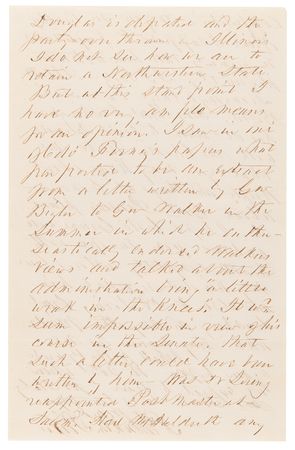 Douglas is defeated and the
party overthrown in Illinois
I do not see how we are to
retain a Northwestern State
But at this stand point I
have no very ample means
for an opinion. I saw in one
of Forney's papers what
purported to be an extract
from a letter written by Gov
Bigler to Gov Walker in the
Summer in which he enthu-
siastically endorsed Walkers
views and talked about the
administration being a little
weak in the knees. It wd
seem impossible in view of his
course in the Senate, that
such a letter could have been
written by him — Was Dr
reappointed Post Master at
Had any